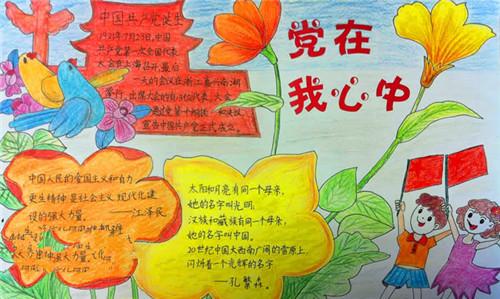 党在
我心中
中国共产党诞生
1921年7月23日,中国
共产党第一次全国代表
大会在上海召开,最后
一天的会议在浙江嘉兴南湖
举行,出席大会的有13位代表,大会
宣告中国共产党正式成立。
中国人民的爱国主义和自力
更生精神是社会主义现代化建
设的强大力量。
——江泽民
太阳和月亮有同一个母亲,
她的名字叫光明;
汉族和藏族有同一个母亲,
她的名字叫中国。
20世纪中国大西南广阔的雪原上,
闪烁着一个光辉的名字
——孔繁森。